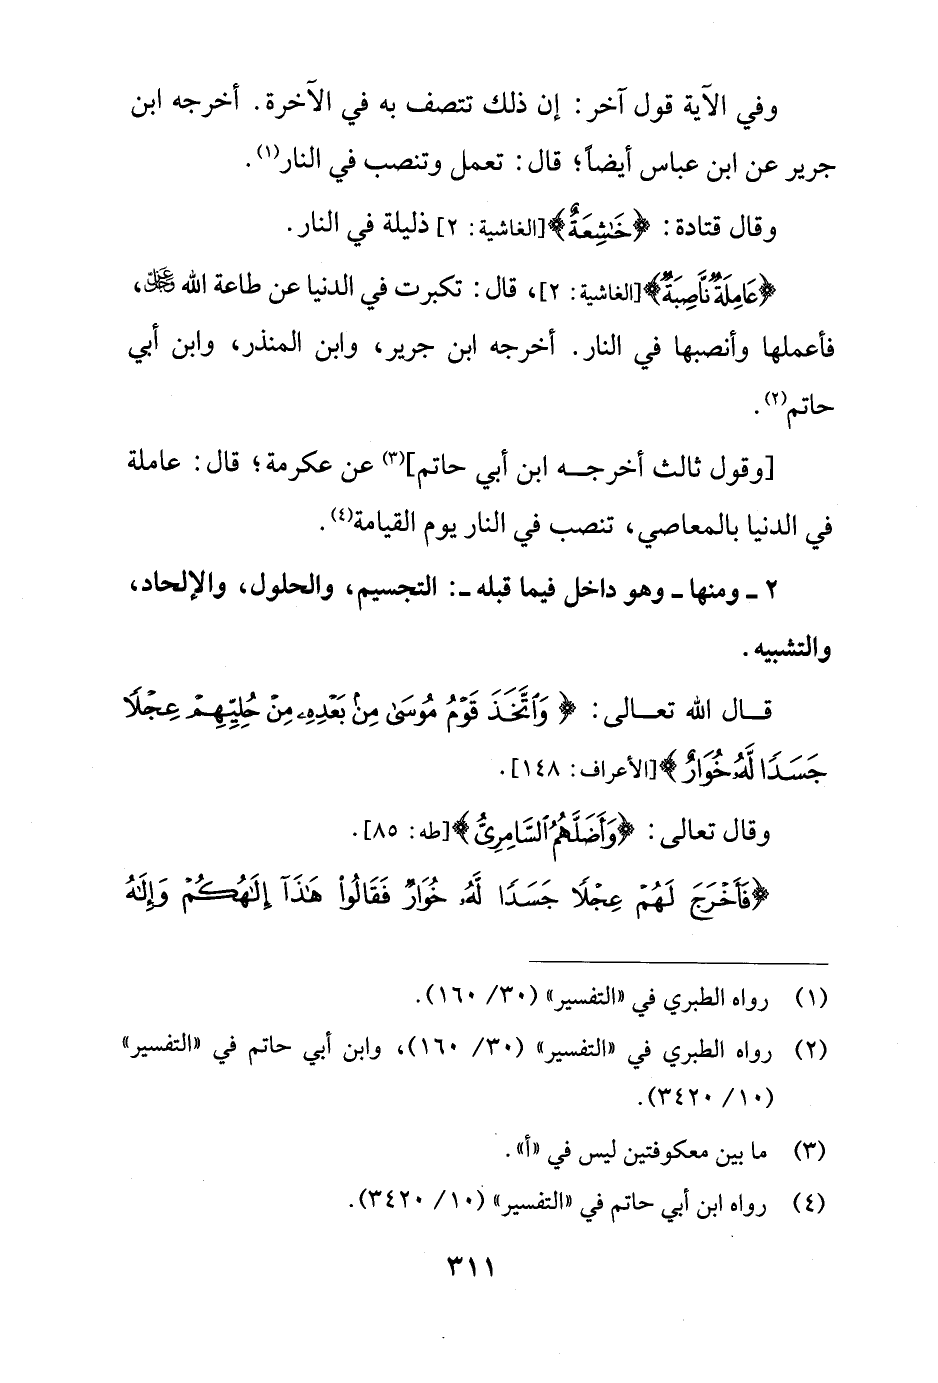 وفي الآية قول آخر: إن ذلك تتصف به في الآخرة. أخرجه ابن
جرير عن ابن عباس أيضاً؛ قال: تعمل وتنصب في النار(١).
وقال قتادة: ﴿خَٰشِعَةٌ﴾[الغاشية: ٢] ذليلة في النار.
﴿عَامِلَةٌ نَّاصِبَةٌ﴾[الغاشية: ٢]، قال: تكبرت في الدنيا عن طاعة الله ﷿،
فأعملها وأنصبها في النار. أخرجه ابن جرير، وابن المنذر، وابن أبي
حاتم(٢).
[وقول ثالث أخرجه ابن أبي حاتم](٣) عن عكرمة؛ قال: عاملة
في الدنيا بالمعاصي، تنصب في النار يوم القيامة(٤).
٢ ـ ومنها ـ وهو داخل فيما قبله ـ: التجسيم، والحلول، والإلحاد،
والتشبيه.
قال الله تعالى: ﴿وَٱتَّخَذَ قَوْمُ مُوسَىٰ مِنۢ بَعْدِهِۦ مِنْ حُلِيِّهِمْ عِجْلًا
جَسَدًا لَّهُۥ خُوَارٌ﴾[الأعراف: ١٤٨].
وقال تعالى: ﴿وَأَضَلَّهُمُ ٱلسَّامِرِىُّ﴾[طه: ٨٥].
﴿فَأَخْرَجَ لَهُمْ عِجْلًا جَسَدًا لَّهُۥ خُوَارٌ فَقَالُوا۟ هَٰذَآ إِلَٰهُكُمْ وَإِلَٰهُ
(١) رواه الطبري في «التفسير» (٣٠/ ١٦٠).
(٢) رواه الطبري في «التفسير» (٣٠/ ١٦٠)، وابن أبي حاتم في «التفسير»
(١٠/ ٣٤٢٠).
(٣) ما بين معكوفتين ليس في «أ».
(٤) رواه ابن أبي حاتم في «التفسير» (١٠/ ٣٤٢٠).
٣١١